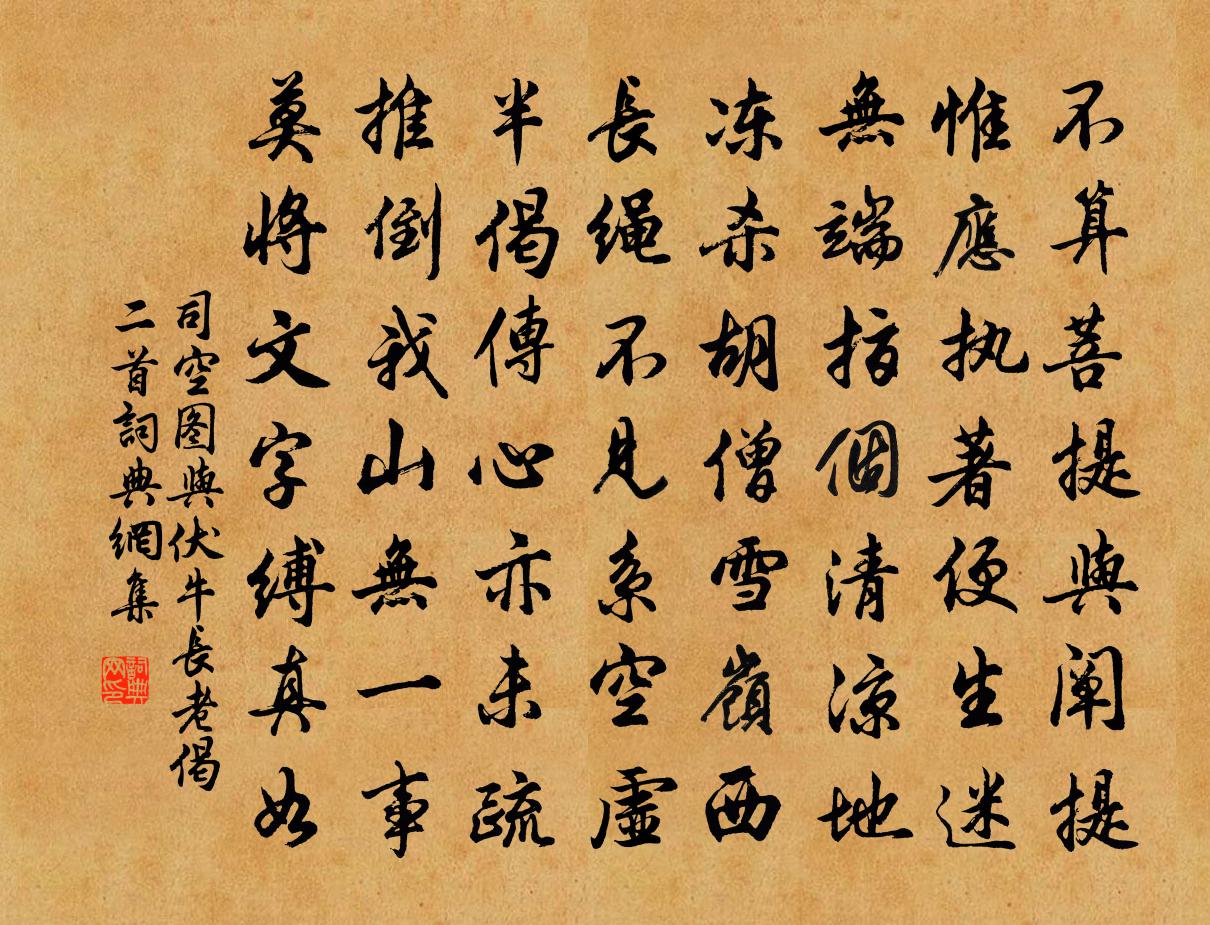 不算菩提與阐提
惟應执著便生迷
無端指個清凉地
冻杀胡僧雪嶺西
長绳不见系空虛
半偈傳心亦未疏
推倒我山無一事
莫将文字缚真如
司空图與伏牛長老偈
二首詞典網集
詞典网印